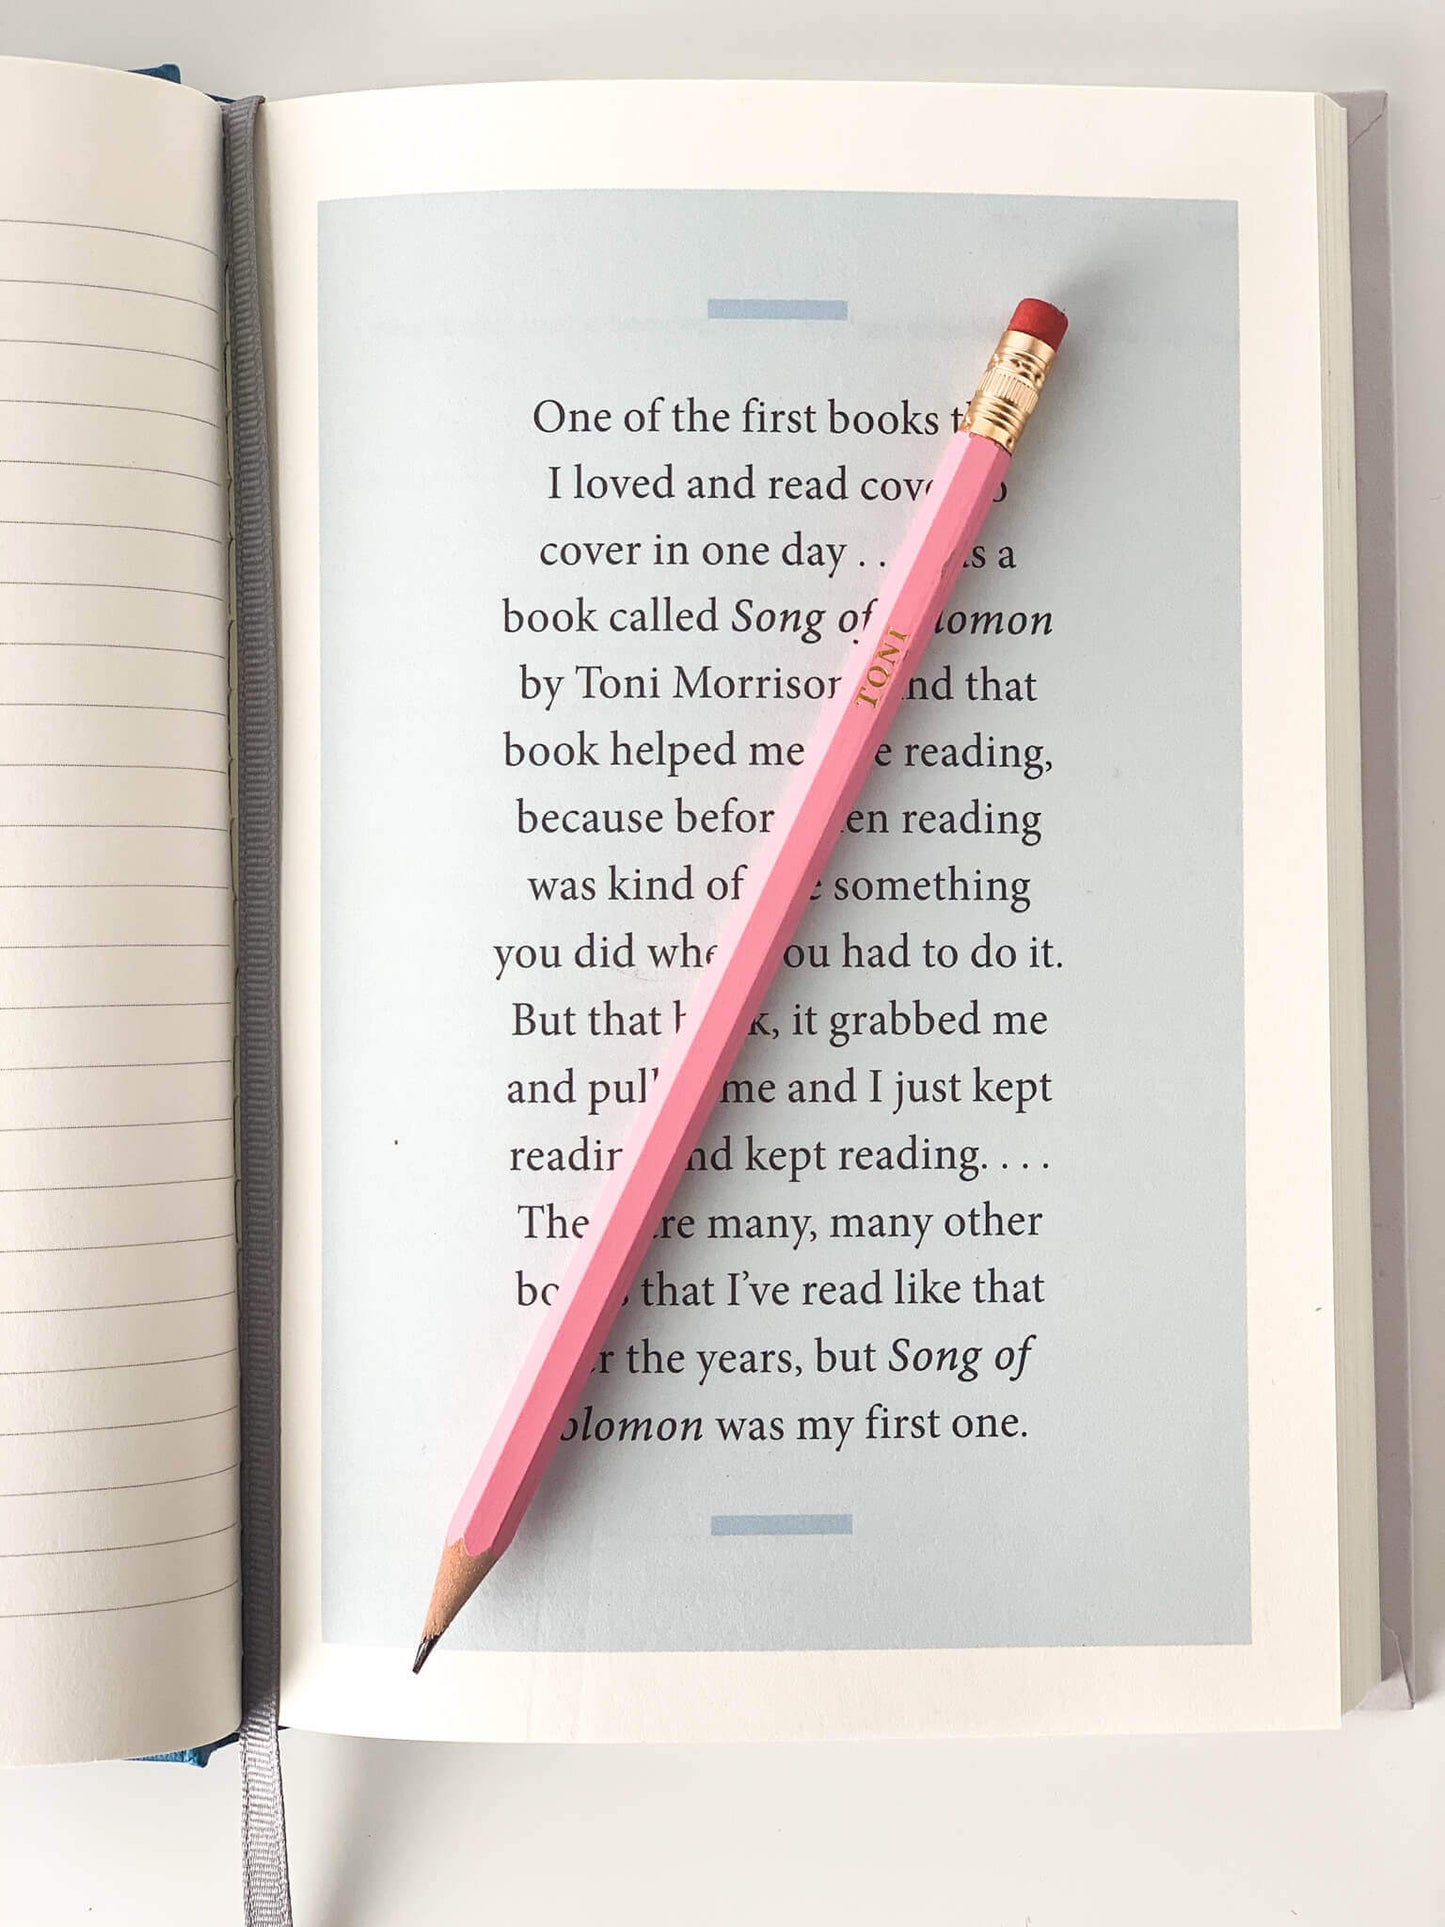 One of the first books
I loved and read
cover in one day . . a
book called Song of
by Toni that
book helped me reading,
because reading
was kind of something
you did had to do it.
But that it grabbed me
and me and I just kept
kept reading. . . .
many, many other
that I’ve read like that
the years, but Song of
was my first one.
TONI